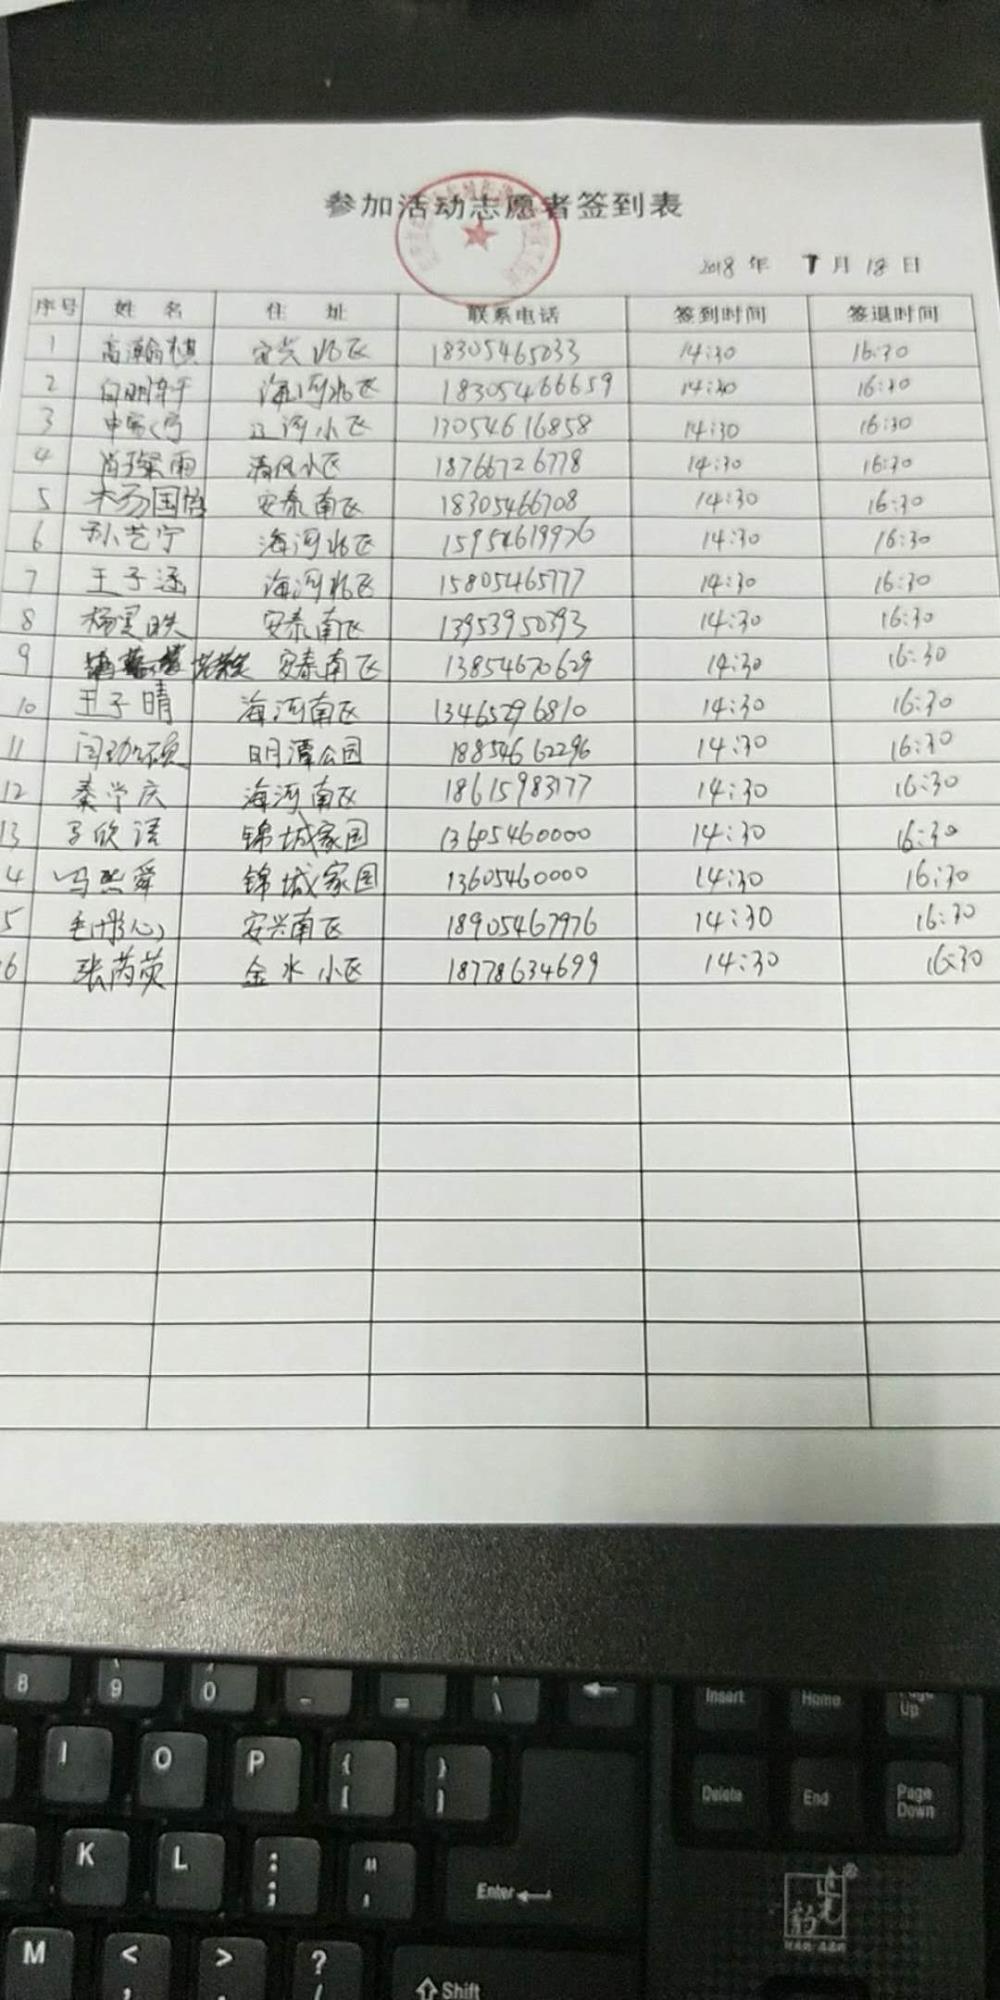 参加活动志愿者签到表
2018 年 7 月 18 日
序号 姓 名 住 址 联系电话 签到时间 签退时间
1 高瀚棋 安兴北区 18305465033 14:30 16:30
2 海河北区 18305466659 14:30 16:30
3 辽河小区 13054616858 14:30 16:30
4 肖 雨 清风小区 18766726778 14:30 16:30
5 杨国 安泰南区 18305466708 14:30 16:30
6 孙艺宁 海河北区 15954619976 14:30 16:30
7 王子涵 海河北区 15805465777 14:30 16:30
8 杨昊昳 安泰南区 13953950393 14:30 16:30
9 安泰南区 13854670629 14:30 16:30
10 王子晴 海河南区 13465296810 14:30 16:30
11 闫 硕 明月潭公园 18854662296 14:30 16:30
12 秦学庆 海河南区 18615983177 14:30 16:30
13 欣语 锦城家园 13605460000 14:30 16:30
4 马熙舜 锦城家园 13605460000 14:30 16:30
5 安兴南区 18905467976 14:30 16:30
6 张芮荧 金水小区 18778634699 14:30 16:30
8 9 0 - = \
I O P { [ } ]
K L : ; " ,
M < , > . ? /
Enter
Shift
Insert Home Page Up
Delete End Page Down
追光豹